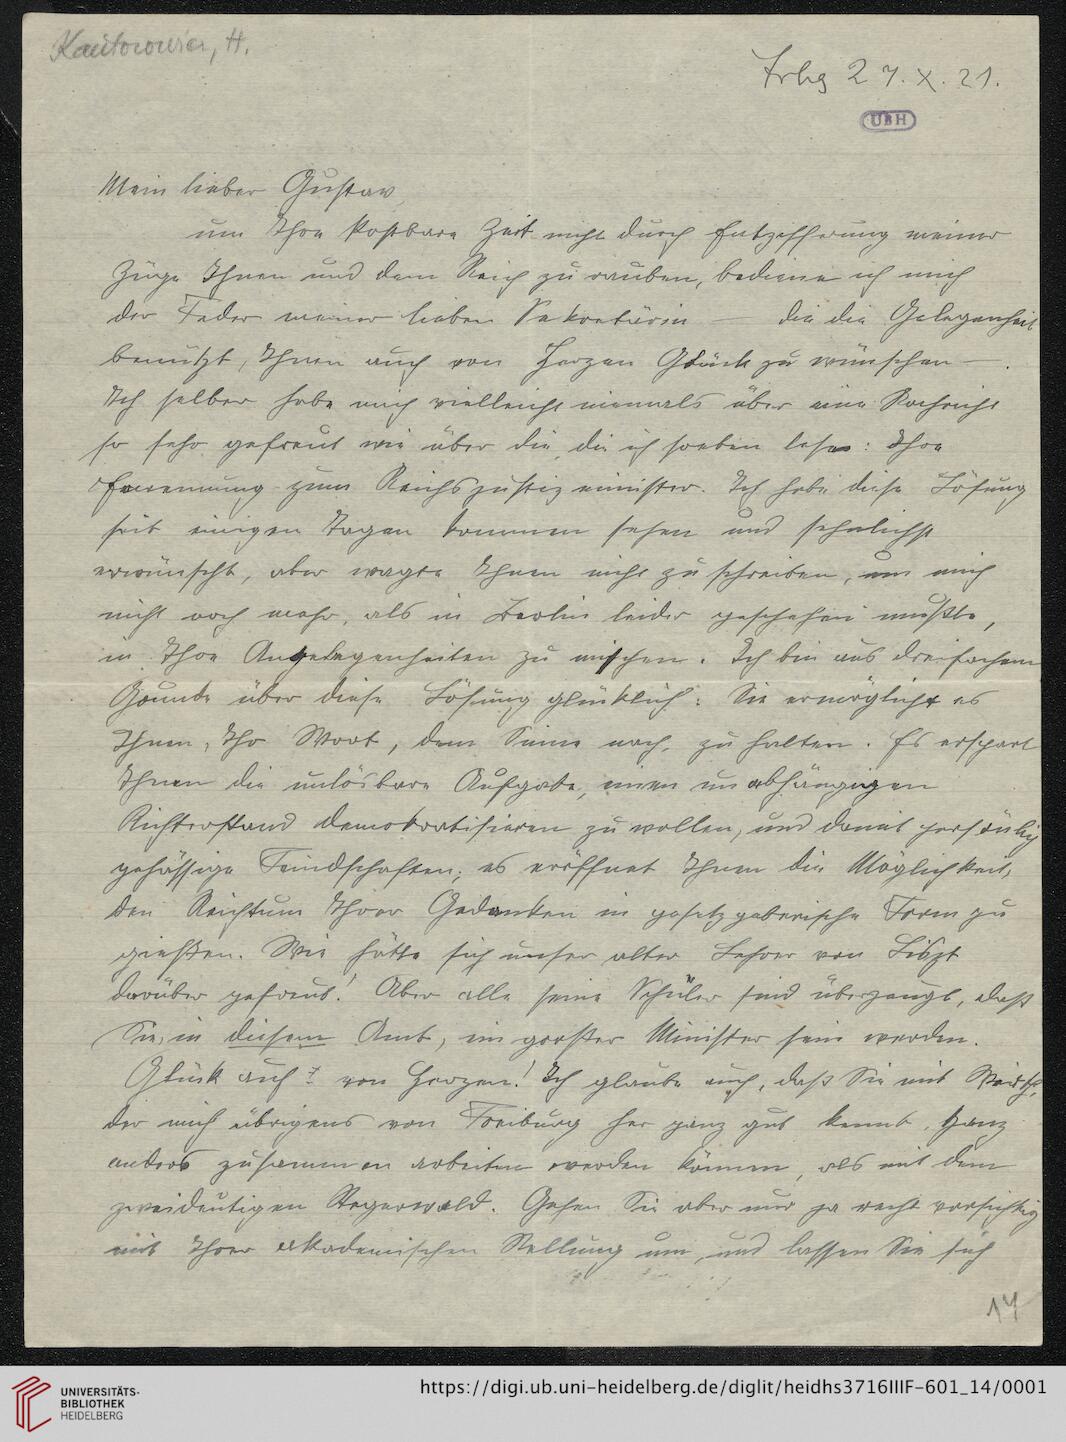 Kantorowicz, H.
Frbg 27. X. 21.
UBH
Mein lieber Gustav,
um Ihre kostbare Zeit nicht durch Entzifferung meiner
Züge Ihnen und dem Reich zu rauben, bediene ich mich
der Feder meiner lieben Sekretärin — die die Gelegenheit
benützt, Ihnen auch von Herzen Glück zu wünschen —.
Ich selber habe mich vielleicht niemals über eine Nachricht
so sehr gefreut wie über die, die ich soeben lese: Ihre
Ernennung zum Reichsjustizminister. Ich habe diese Lösung
seit einigen Tagen kommen sehen und sehnlichst
erwünscht, aber wagte Ihnen nicht zu schreiben, um mich
nicht noch mehr, als in Berlin leider geschehen mußte,
in Ihre Angelegenheiten zu mischen. Ich bin aus dreifachem
Grunde über diese Lösung glücklich: Sie ermöglicht es
Ihnen, Ihr Wort, dem Sinne nach, zu halten. Es erspart
Ihnen die unlösbare Aufgabe, einen unabhängigen
Richterstand demokratisieren zu wollen, und damit persönlich
gehässige Feindschaften; es eröffnet Ihnen die Möglichkeit,
den Reichtum Ihrer Gedanken in gesetzgeberische Form zu
gießen. Wie hätte sich unser alter Lehrer von Liszt
darüber gefreut! Aber alle seine Schüler sind überzeugt, daß
Sie, in diesem Amt, ein großer Minister sein werden.
Glück auf! von Herzen! Ich glaube auch, daß Sie mit Wirth,
der mich übrigens von Freiburg her ganz gut kennt, ganz
anders zusammen arbeiten werden können, als mit dem
zweideutigen Stegerwald. Gehen Sie aber nur ja recht vorsichtig
mit Ihrer akademischen Stellung um, und lassen Sie sich
14
UNIVERSITÄTS-
BIBLIOTHEK
HEIDELBERG
https://digi.ub.uni-heidelberg.de/diglit/heidhs3716IIIF-601_14/0001